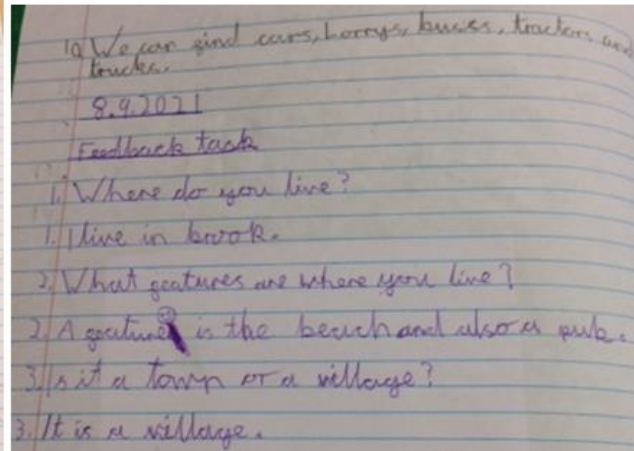 10 We can find cars, Lorrys, buses, tractors and
trucks.
8.9.2021
Feedback task
1. Where do you live?
1. I live in brook.
2. What features are where you live?
2. A feature is the beach and also a pub.
3. Is it a town or a village?
3. It is a village.